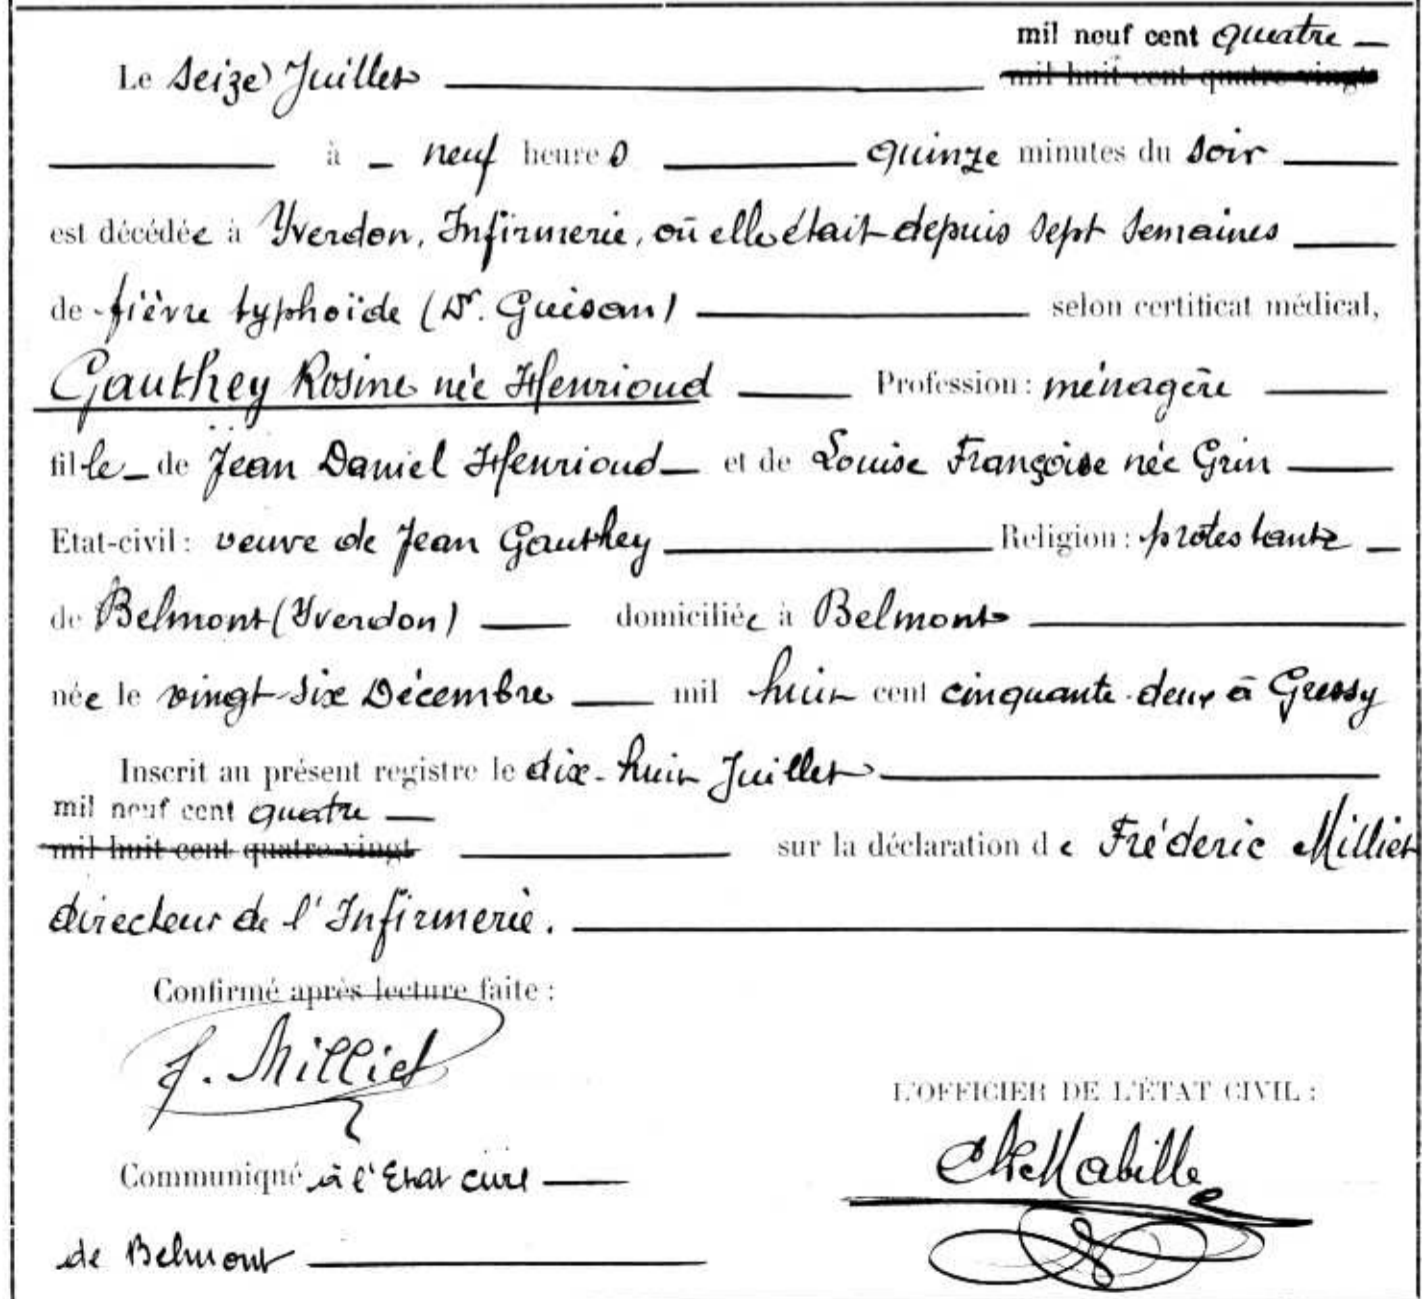 mil neuf cent quatre
Le Seize Juillet mil huit cent quatre-vingt
à neuf heures quinze minutes du soir
est décédée à Yverdon, Infirmerie, où elle était depuis sept semaines
de fièvre typhoïde (Dr. Guisan) selon certificat médical,
Gauthey Rosine née Henrioud Profession : ménagère
fille de Jean Daniel Henrioud et de Louise Françoise née Grin
Etat-civil : veuve de Jean Gauthey Religion : protestante
de Belmont (Yverdon) domiciliée à Belmont
née le vingt-six Décembre mil huit cent cinquante-deux à Gressy
Inscrit au présent registre le dix-huit Juillet
mil neuf cent quatre
mil huit cent quatre-vingt sur la déclaration de Fréderic Milliet
directeur de l'Infirmerie.
Confirmé après lecture faite :
F. Milliet
L'OFFICIER DE L'ÉTAT CIVIL :
Ch Mabille
Communiqué à l'Etat civil
de Belmont